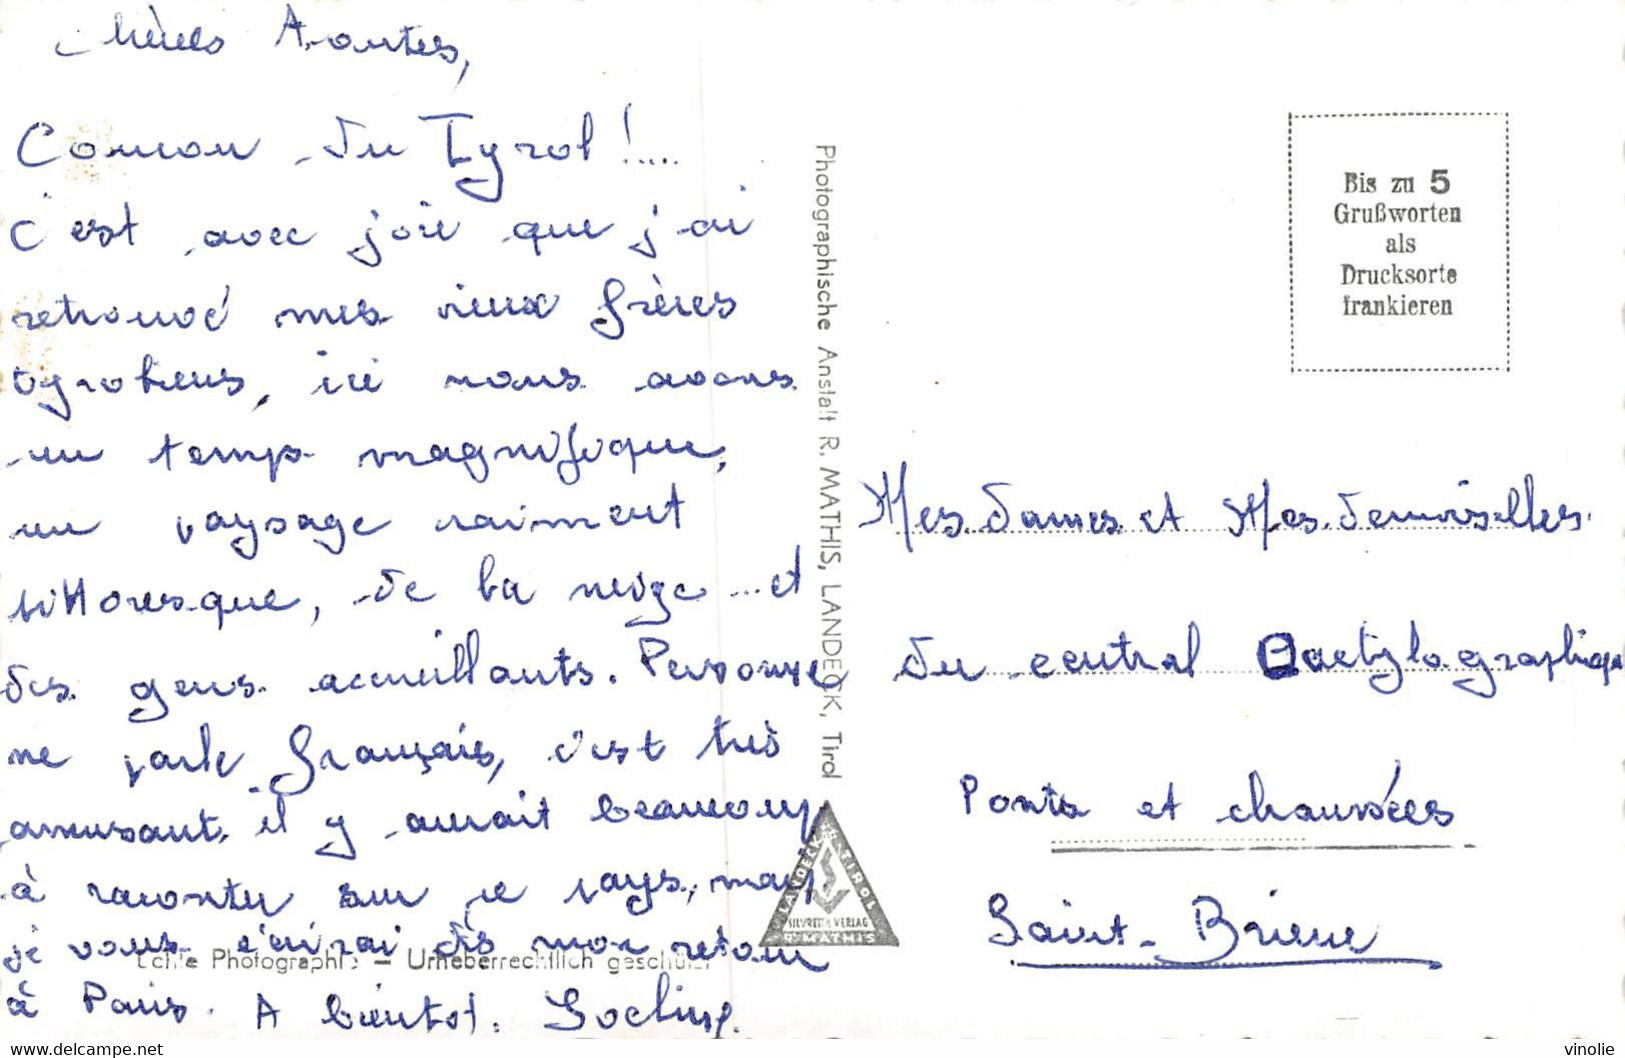 Chères Toutes,
Coucou du Tyrol !....
c'est avec joie que j'ai
retrouvé mes vieux frères
tyroliens, ici nous avons
un temps magnifique,
un paysage vraiment
pittoresque, de la neige ... et
des gens accueillants. Personne
ne parle français, c'est très
amusant, il y aurait beaucoup
à raconter sur ce pays, mais
je vous écrirai dès mon retour
à Paris. A bientôt.
Echte Photographie — Urheberrechtlich geschützt
Photographische Anstalt R. MATHIS, LANDECK, Tirol
LANDECK TIROL
SILVRETTA VERLAG
R. MATHIS
Bis zu 5
Grußworten
als
Drucksorte
frankieren
Mesdames et Mesdemoiselles
du central Dactylographique
Ponts et chaussées
Saint-Brieuc
vinolie